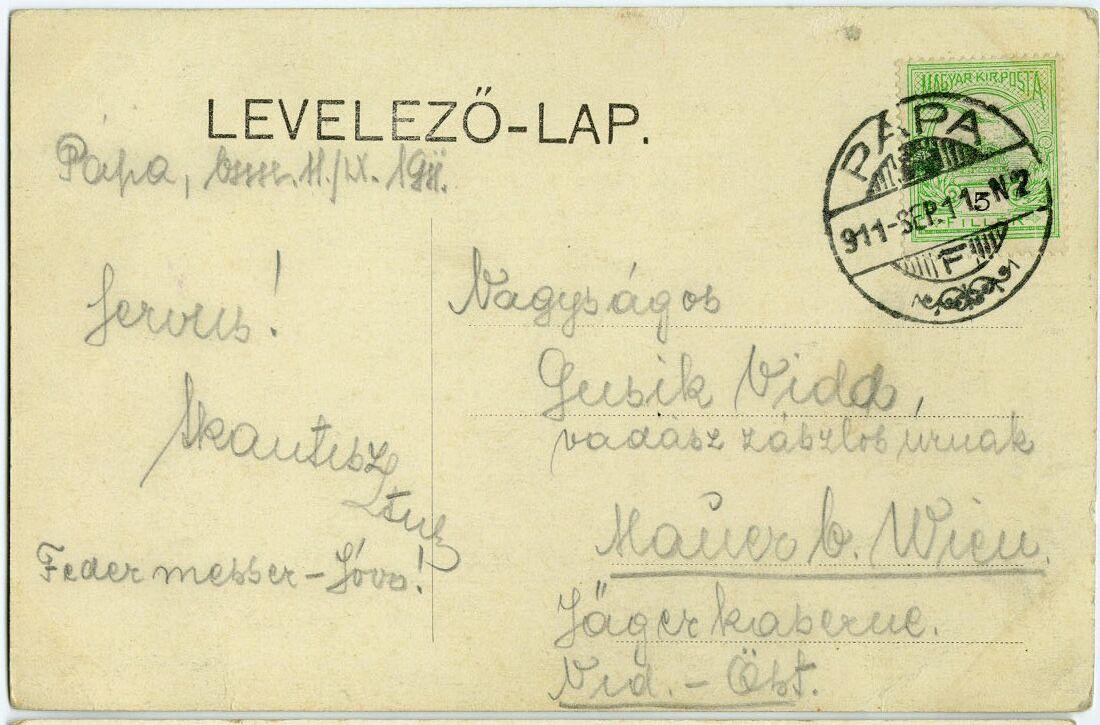 LEVELEZŐ-LAP.
MAGYAR·KIR.POSTA
5
FILLÉR
PÁPA
911-SEP.11.5-N2
F
Pápa, 11./IX. 1911.
Servus!
Federmesser-Jóvo!
Nagyságos
Gusik Vidd,
vadász zászlós úrnak
Mauer b. Wien.
Jägerkaserne.
Nid.-Öst.